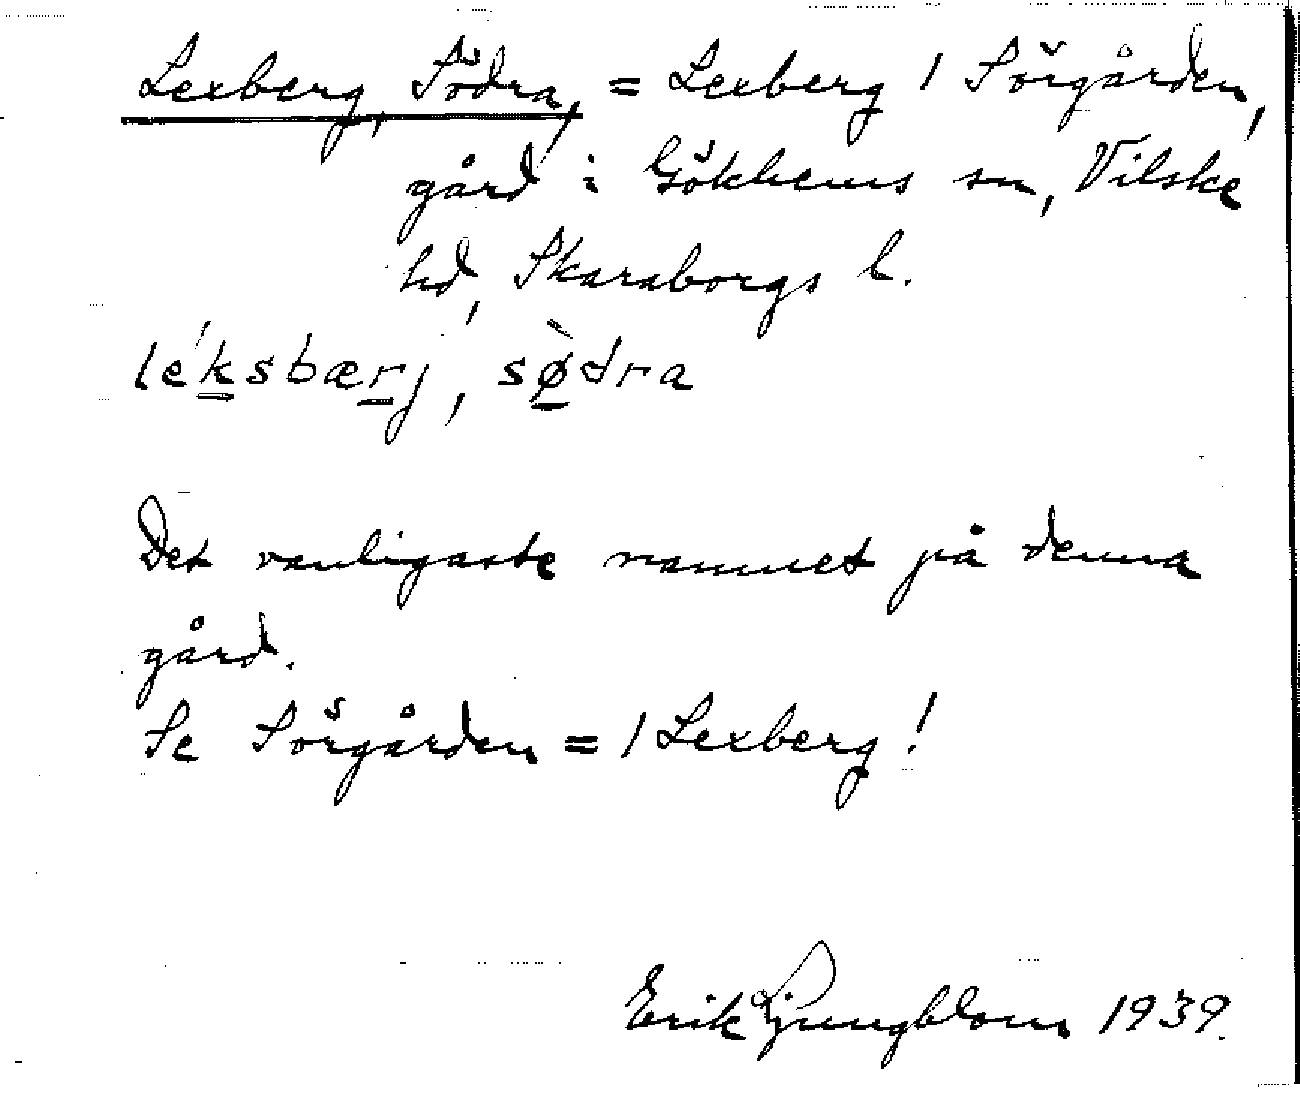 Lexberg, Södra, = Lexberg 1 Sörgården,
gård i Gökhems sn, Vilske
hd, Skaraborgs l.
léksbærj, sø̀dra
Det vanligaste namnet på denna
gård.
Se Sörgården = 1 Lexberg!
Erik Ljungblom 1939.